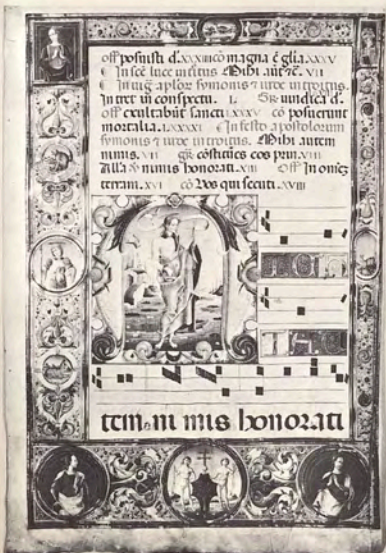 off posuisti d. xxxiii cō magna ē glīa. xxxv
In scē luce
Mihi aut ē. vii
In vig aplor symonis z iude introitus.
Intret in conspectu. l. Gr. vindica d.
off exultabūt sancti lxxxv cō posuerunt
mortalia. lxxxxi In festo apostolorum
symonis z iude introitus. Mihi autem
nimis. vii gr. cōstitues eos prin. viii
Alla nimis honorati. xiii Off In omnē
terram. xvi cō Vos qui secuti. xviii
tem ni mis honorati